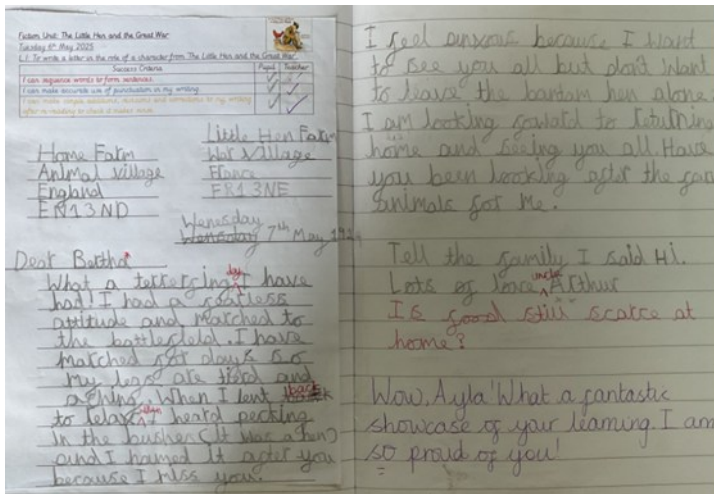 Fiction Unit: The Little Hen and the Great War
Tuesday 6th May 2025
L.I: To write a letter in the role of a character from The Little Hen and the Great War.
Success Criteria Pupil Teacher
I can sequence words to form sentences.
I can make accurate use of punctuation in my writing.
I can make simple additions, revisions and corrections to my writing
after re-reading to check it makes sense.
Little Hen Farm
War Village
France
FR1 3NE
Home Farm
Animal Village
England
EN1 3ND
Wenesday
7th May
Dear Bertha
What a terrercing day I have
had! I had a
attitude and marched to
the battlefield. I have
marched for days so
my legs are tierd and
aching. When I lent back
to relax, I heard pecking
in the bushes (It was a hen)
and I named it after you
because I miss you.
I feel anxous because I want
to see you all but don't want
to leave the bantam hen alone.
I am looking forward to returning
home and seeing you all. Have
you been looking after the
animals for me.
Tell the family I said Hi.
Lots of love uncle Arthur
Is food still scarce at
home?
Wow, Ayla! What a fantastic
showcase of your learning. I am
so proud of you!